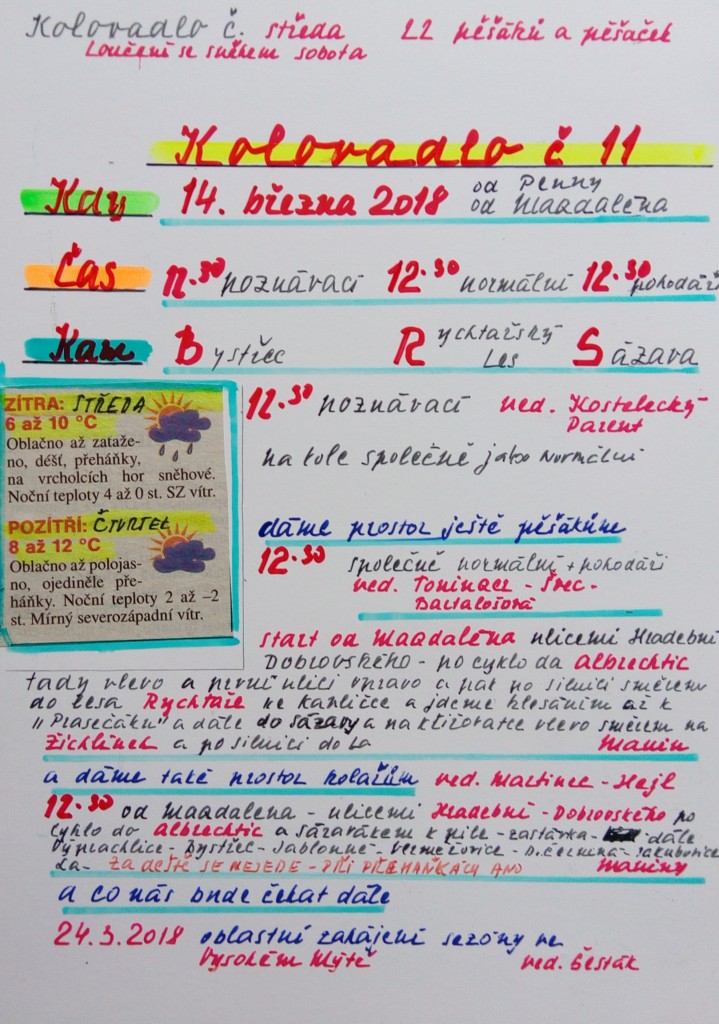 Kolovadlo č. středa 22 pěšáků a pěšaček
Loučení se sněhem sobota
Kolovadlo č 11
Kdy 14. března 2018 od Penny
od Magdaléna
Čas 12.30 poznávací 12.30 normální 12.30 pohodáři
Kam Bystřec Rychtářský Les Sázava
ZÍTRA: STŘEDA
6 až 10 °C
Oblačno až zataže-
no, déšť, přeháňky,
na vrcholcích hor sněhové.
Noční teploty 4 až 0 st. SZ vítr.
POZÍTŘÍ: ČTVRTEK
8 až 12 °C
Oblačno až polojas-
no, ojediněle pře-
háňky. Noční teploty 2 až –2
st. Mírný severozápadní vítr.
12.30 poznávací ved. Kostelecký
Parent
na kole společně jako normální
dáme prostor ještě pěšákům
12.30 společně normální + pohodáři
ved. Toninger - Švec -
Bartalošová
start od Magdaléna ulicemi Hradební
Dobrovského - po cyklo da Albrechtic
tady vlevo a první ulicí vpravo a pak po silnici směrem
do lesa Rychtáře ke kapličce a jdeme klesáním až k
"Prasečáku" a dále do Sázavy a na křižovatce vlevo směrem na
Žichlínek a po silnici do La Maxim
a dáme také prostor kolařům ved. Martinec - Hejl
12.30 od Magdaléna - ulicemi Hradební - Dobrovského po
cyklo do Albrechtic a sázavákem k pile - zastávka - dále
Výprachtice - Bystřec - Jablonné - Verměřovice - D.Čermná - Jakubovice
La - ZA DEŠTĚ SE NEJEDE - PŘI PŘEHÁŇKÁCH ANO
a co nás bude čekat dále
24.3.2018 oblastní zahájení sezóny ve
Vysokém Mýtě ved. Šesták